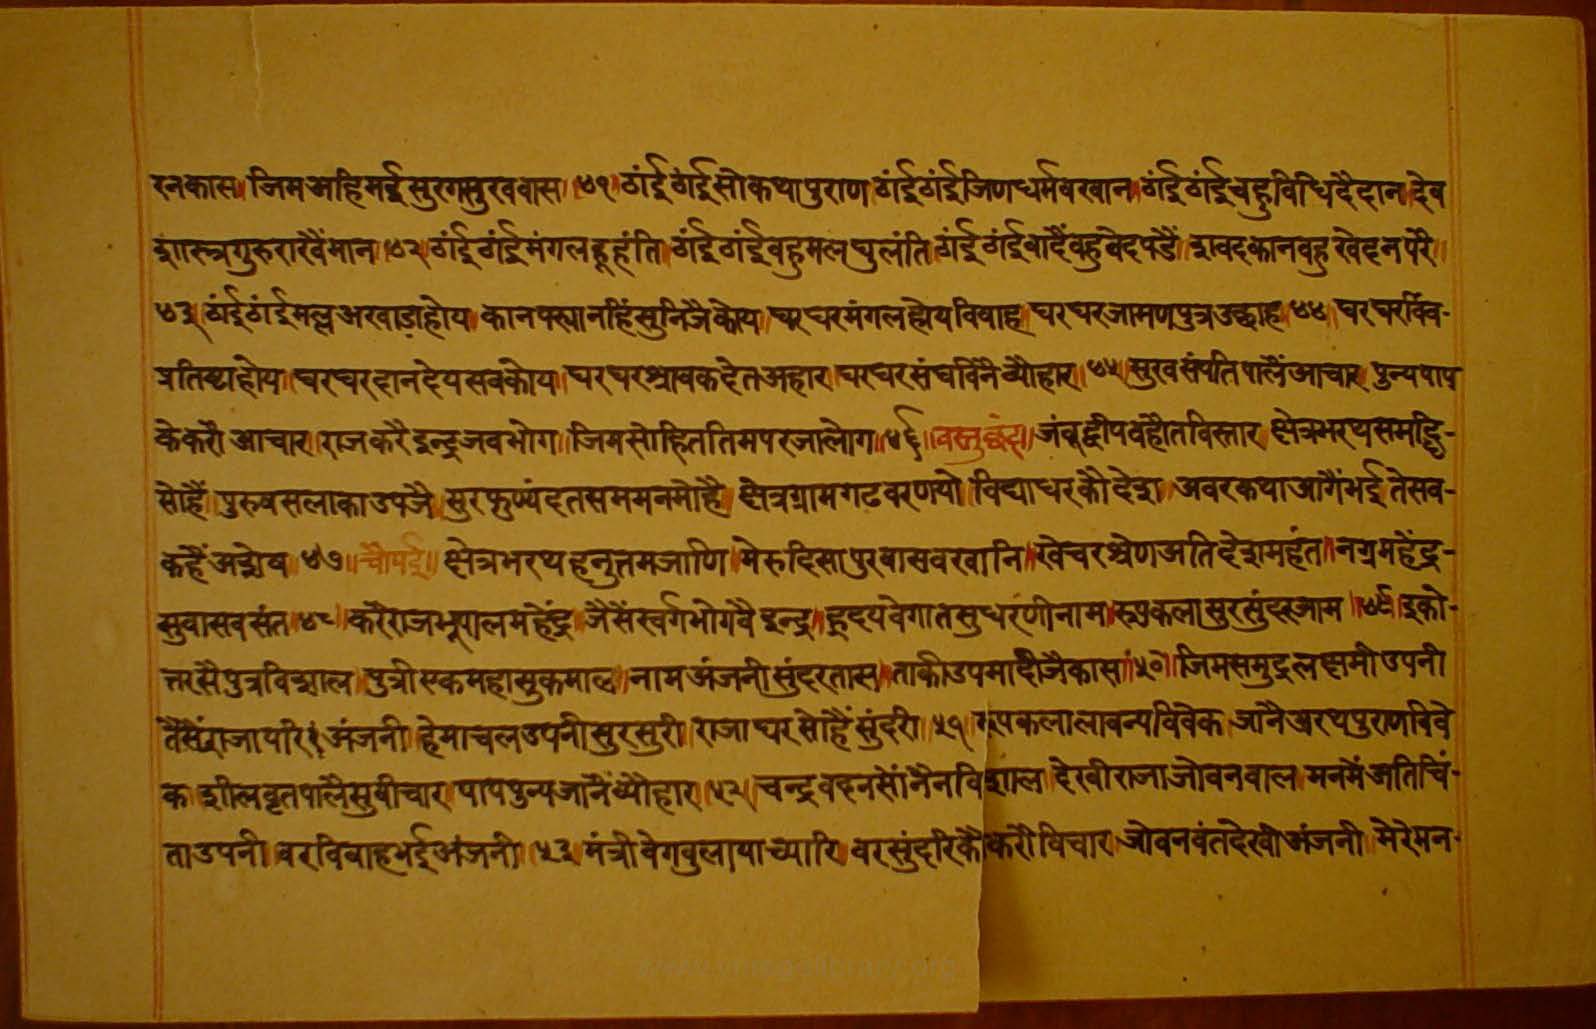 रनकास॥ जिमअहिमर्इसुरगसुखवास॥४१॥ ठांईठांईसोकथापुराण ठांईठांईजिणधर्मवखान॥ ठांईठांईबहुविधिदैदान॥ देव
शास्त्रगुरुराखैंमान॥४२॥ ठांईठांईमंगलहूहंति॥ ठांईठांईबहुमलघुलंति ठांईठांईवादैंबहुवेदपडैं॥ शवदकानबहुखेदनपरै॥
४३॥ ठांईठांईमल्लअखाडाहोय॥ कानपस्यानहिंसुनिजैकोय॥ घरघरमंगलहोयविवाह॥ घरघरजामणपुत्रउछाह॥४४॥ घरघरविंव-
प्रतिष्टाहोय॥ घरघरदानदेयसबकोय॥ घरघरश्रावकदेतअहार॥ घरघरसंघविंनैव्यौहार॥४५॥ सुखसंपतिपालैंआचार॥ पुन्यपाप
केकरौआचार॥ राजकरैइन्द्रजवभोग॥ जिमसोहिततिमपरजालोग॥४६॥ वस्तुछंद॥ जंबूद्वीपवहौतविस्तार॥ क्षेत्रभरथसमदृि-
सोहैं॥ पुरुषसलाकाउपजै॥ सुरफुण्यंदतसममनमोहै॥ क्षेत्रग्रामगढवरणयो॥ विद्याधरकौदेश॥ अवरकथाआगैंभई॥ तेसब-
कहैंअशेष॥४७॥ चौपई॥ क्षेत्रभरथहनुतमजाणि॥ मेरुदिसापुरवासवखानि॥ खेचरश्रेणअतिदेशमहंत॥ नग्रमहेंद्र-
सुवासवसंत॥४८॥ करैराजभूपालमहेंद्र॥ जैसेंस्वर्गभोगवैइन्द्र॥ हृदयवेगातसुघरणीनाम॥ रूपकलासुरसुंदरजाम॥४९॥ इको-
त्तरसैपुत्रविशाल॥ पुत्रीएकमहासुकमाल॥ नामअंजनीसुंदरतास॥ ताकीउपमादीजैकास॥५०॥ जिमसमुद्रलक्ष्मीउपनी
तैसैंराजाघरि अंजनी॥ हेमाचलउपनीसुरसुरी॥ राजाघरसोहैंसुंदरी॥५१॥ रूपकलालावन्यविवेक॥ जानैअरथपुराणविवे
क॥ शीलवृतपालैसुवीचार॥ पापपुन्यजानैंव्यौहार॥५२॥ चन्द्रवदनसोंनैनविशाल॥ देखीराजाजोवनवाल॥ मनमेंअतिचिं-
ताउपनी॥ वरविवाहभईअंजनी॥५३॥ मंत्रीवेगबुलायाच्यारि॥ वरसुंदरिकौकरौविचार॥ जोवनवंतदेखीअंजनी॥ मेरेमन-